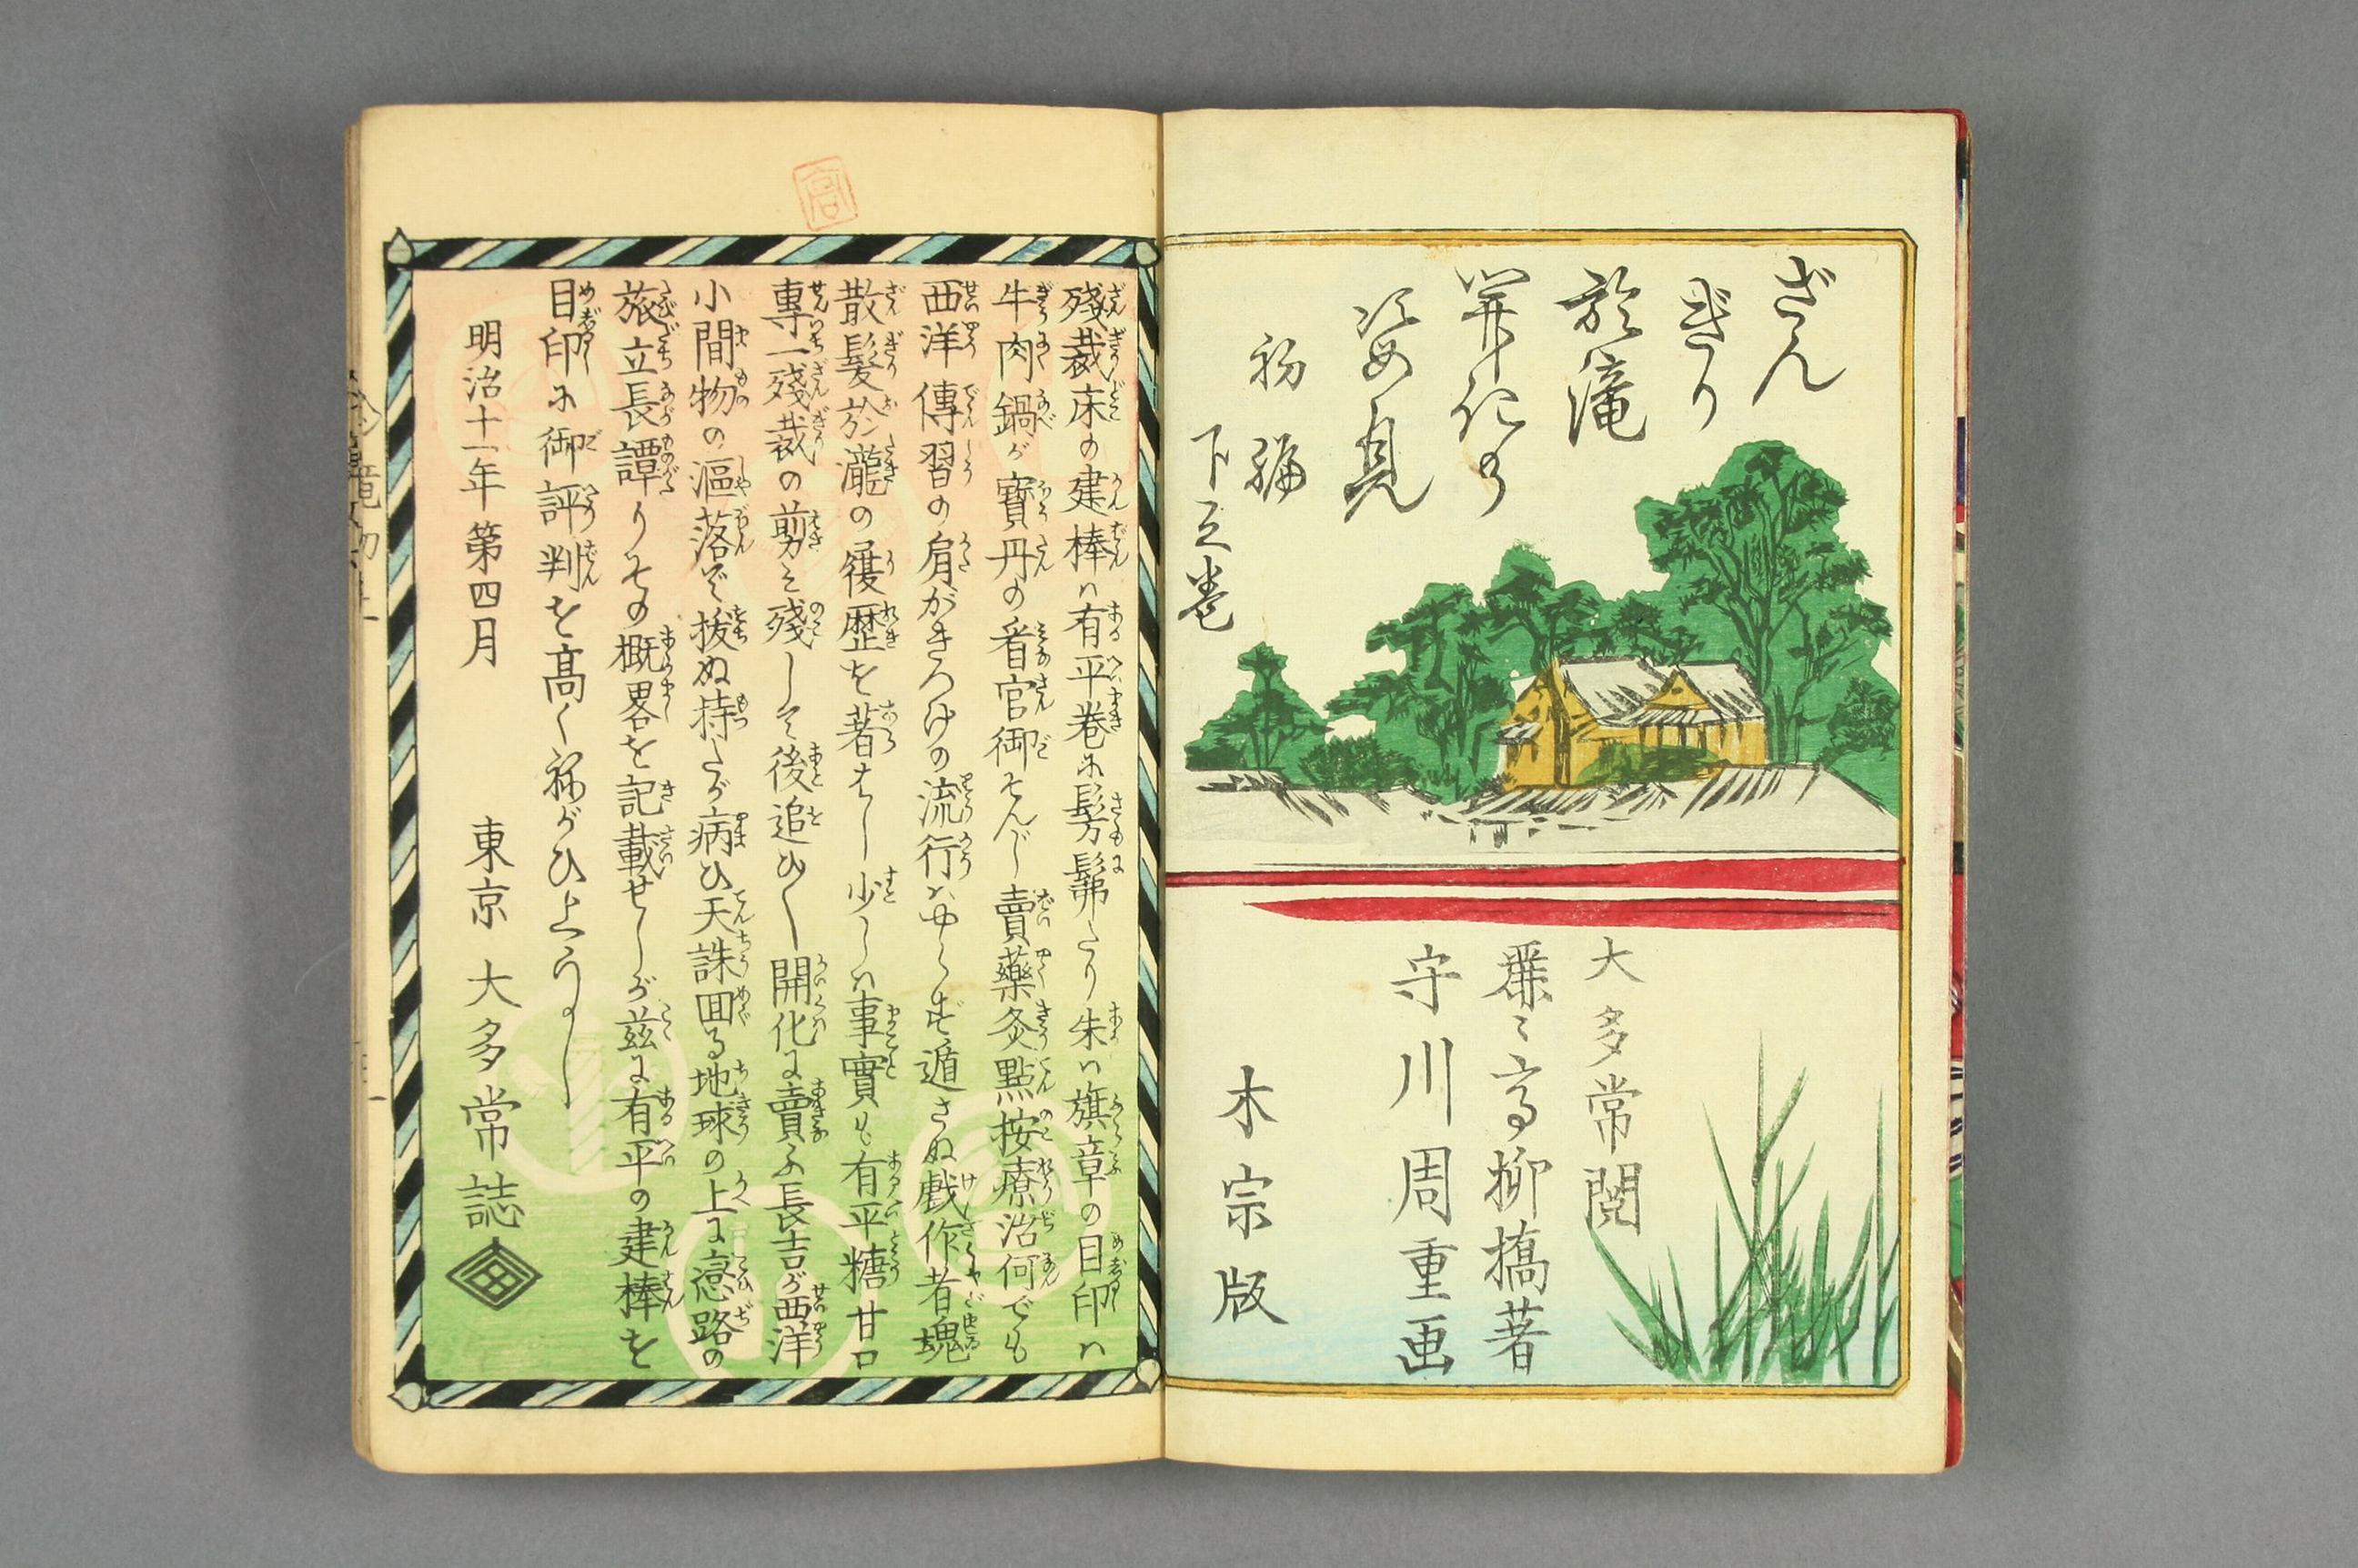 ざん
ぎり
於滝
開化の
姿見
初編
下之巻
大多常閲
守川周重画
木宗版
殘裁床の建棒ハ有平巻に髣髴たり朱ハ旗章の目印ハ
牛肉鍋が寳丹の看官御ぞんじ賣藥灸點按療治何でも
西洋傳習の肩がきつけの流行ハやらず遁さぬ戯作者魂
散髪於瀧の履歴を著はし少しハ事實も有平糖甘口
專一殘裁の剪ミ殘しミ後追ひ〳〵開化に賣ふ長吉が西洋
小間物の洒落で抜ぬ持たが病ひ天誅囬る地球の上に恋路の
旅立長譚りその概畧を記載せしが茲に有平の建棒を
目印に御評判を髙く祢がひ上うのし
明治十一年第四月
東京 大多常誌